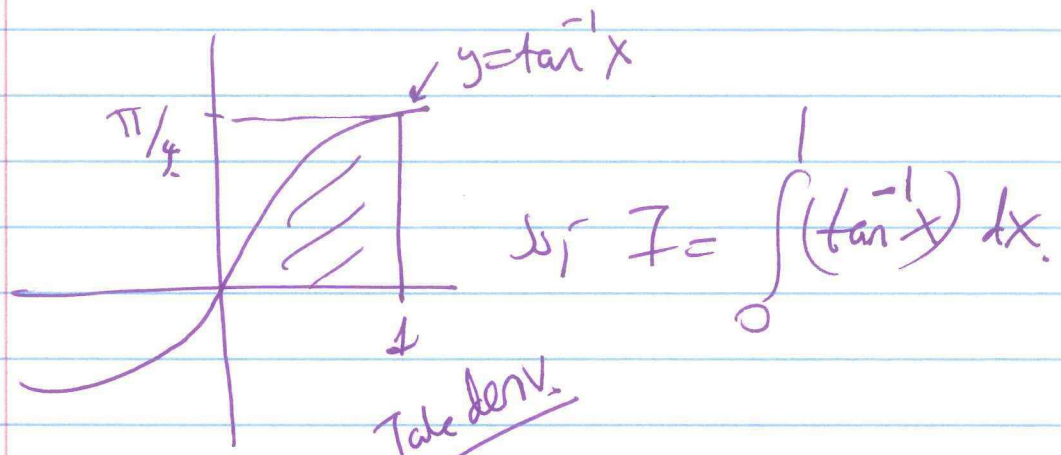 y=tan⁻¹x
π/4
I = ∫₀¹ (tan⁻¹x) dx.
1
Take deriv.